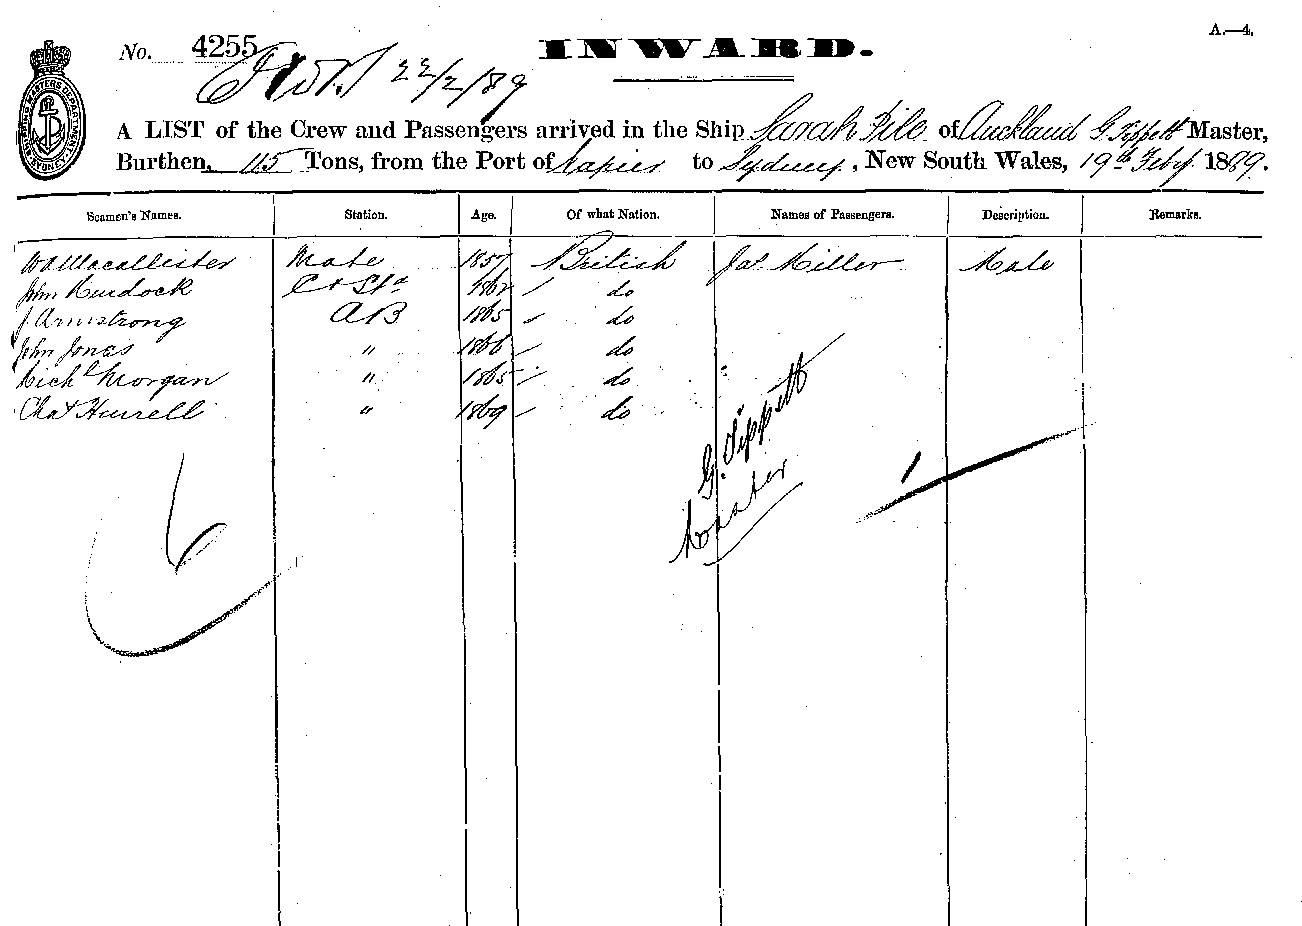 A.—4.
No. 4255
INWARD.
22/2/89
A LIST of the Crew and Passengers arrived in the Ship Sarah Pile of Auckland G. Tippett Master,
Burthen, 115 Tons, from the Port of Napier to Sydney, New South Wales, 19th Feby. 1889.
Seamen's Names. Station. Age. Of what Nation. Names of Passengers. Description. Remarks.
Wm Macallister Mate 1857 British Jas. Miller Male
John Murdock C & Std 1862 do
J Armstrong AB 1865 do
John Jonas " 1866 do
Richd Morgan " 1865 do
Chas Hurrell " 1869 do
G. Tippett
Master
6
1